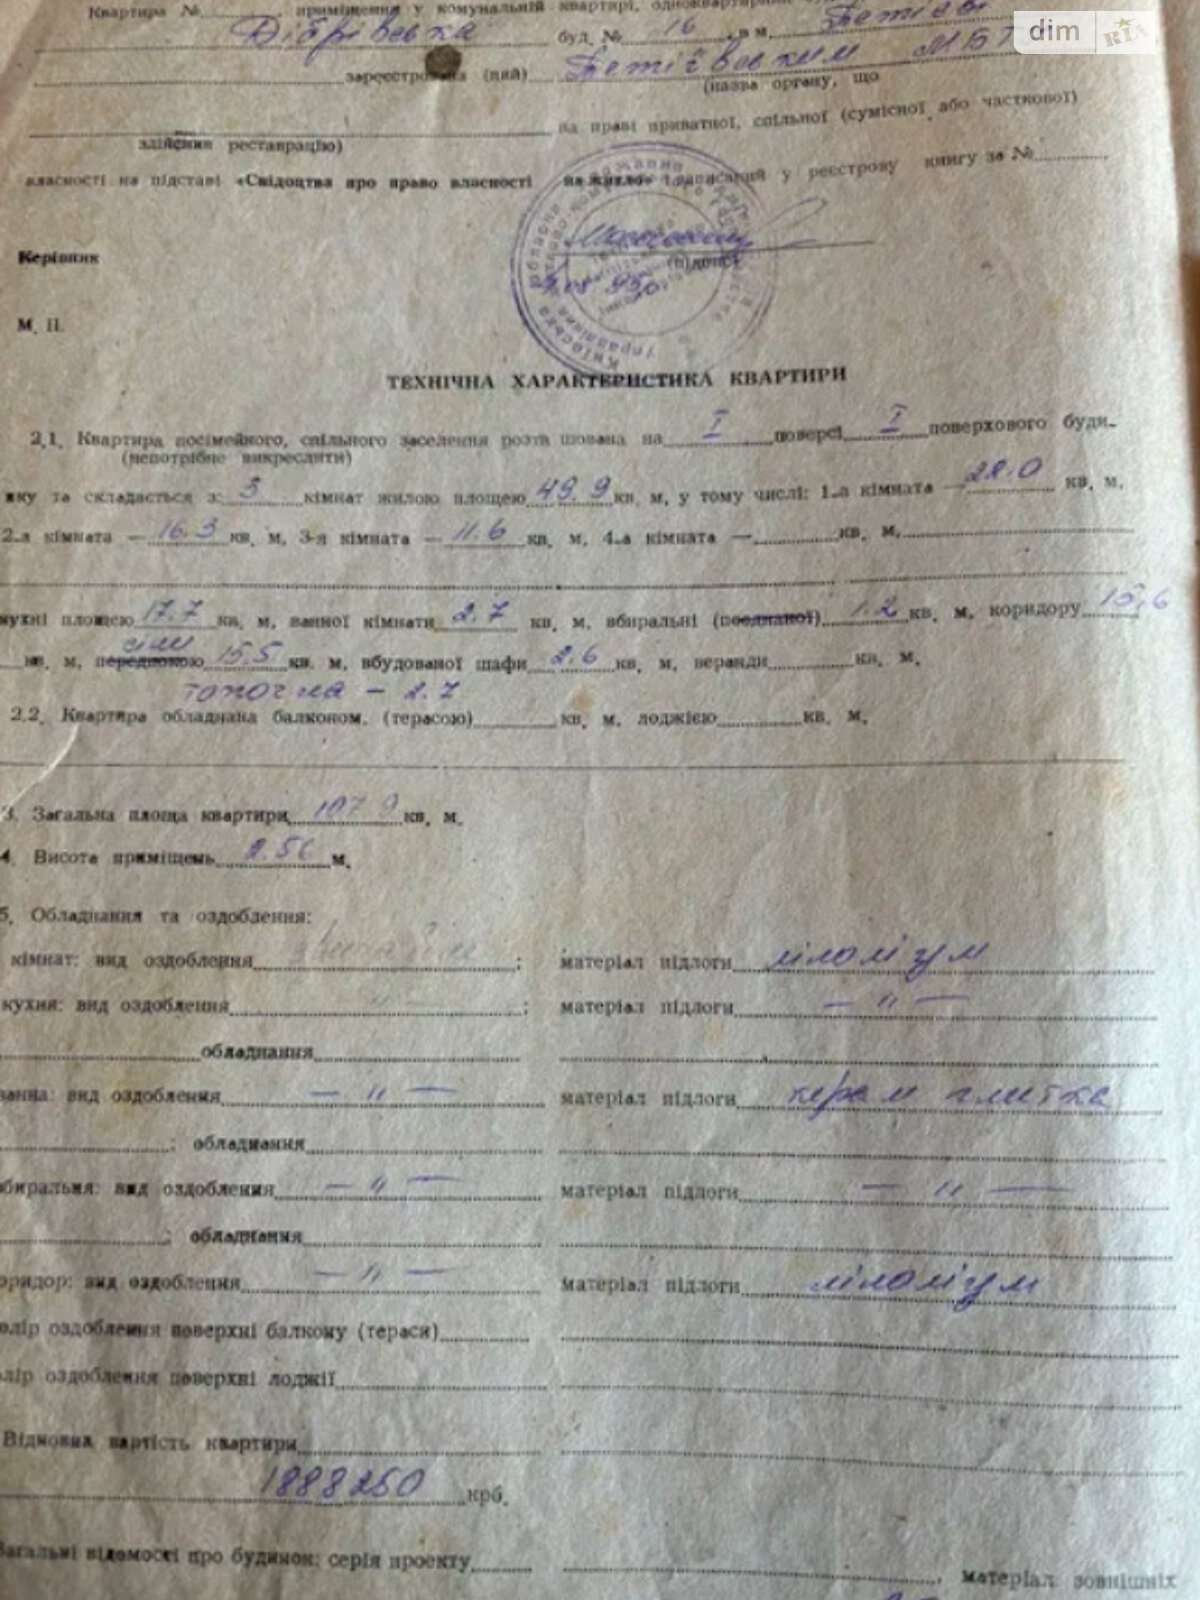 dim RIA
Квартира № приміщення у комунальній квартирі,
Дібрівська буд. № 16, в м. Тетіїв
зареєстрована (ний) Тетіївським МБТІ
(назва органу, що
на праві приватної, спільної (сумісної або часткової)
здійснив реставрацію)
власності на підставі «Свідоцтва про право власності на житло» і записаний у реєстрову книгу за №
Керівник
(підпис)
М. П.
ТЕХНІЧНА ХАРАКТЕРИСТИКА КВАРТИРИ
2.1. Квартира посімейного, спільного заселення розташована на І поверсі І поверхового буди-
(непотрібне викреслити)
нку та складається з: 3 кімнат жилою площею 49.9 кв. м, у тому числі: 1-а кімната — 22.0 кв. м.
2-а кімната — 16.3 кв. м, 3-я кімната — 11.6 кв. м, 4-а кімната — кв. м,
кухні площею 17.7 кв. м, ванної кімнати 2.7 кв. м, вбиральні (поєднаної) 1.2 кв. м, коридору 15.6
кв. м, передпокою 15.5 кв. м, вбудованої шафи 2.6 кв. м, веранди кв. м.
топочна – 2.7
2.2. Квартира обладнана балконом, (терасою) кв. м, лоджією кв. м.
3. Загальна площа квартири 107.9 кв. м.
4. Висота приміщень 2.56 м.
5. Обладнання та оздоблення:
кімнат: вид оздоблення ; матеріал підлоги лінолігум
кухня: вид оздоблення — " — ; матеріал підлоги — " —
обладнання
ванна: вид оздоблення — " — матеріал підлоги керам плитка
; обладнання
вбиральня: вид оздоблення — " — матеріал підлоги — " —
; обладнання
коридор: вид оздоблення — " — матеріал підлоги лінолігум
колір оздоблення поверхні балкону (тераси)
колір оздоблення поверхні лоджії
Відновна вартість квартири
1888250 крб.
Загальні відомості про будинок: серія проекту , матеріал зовнішніх